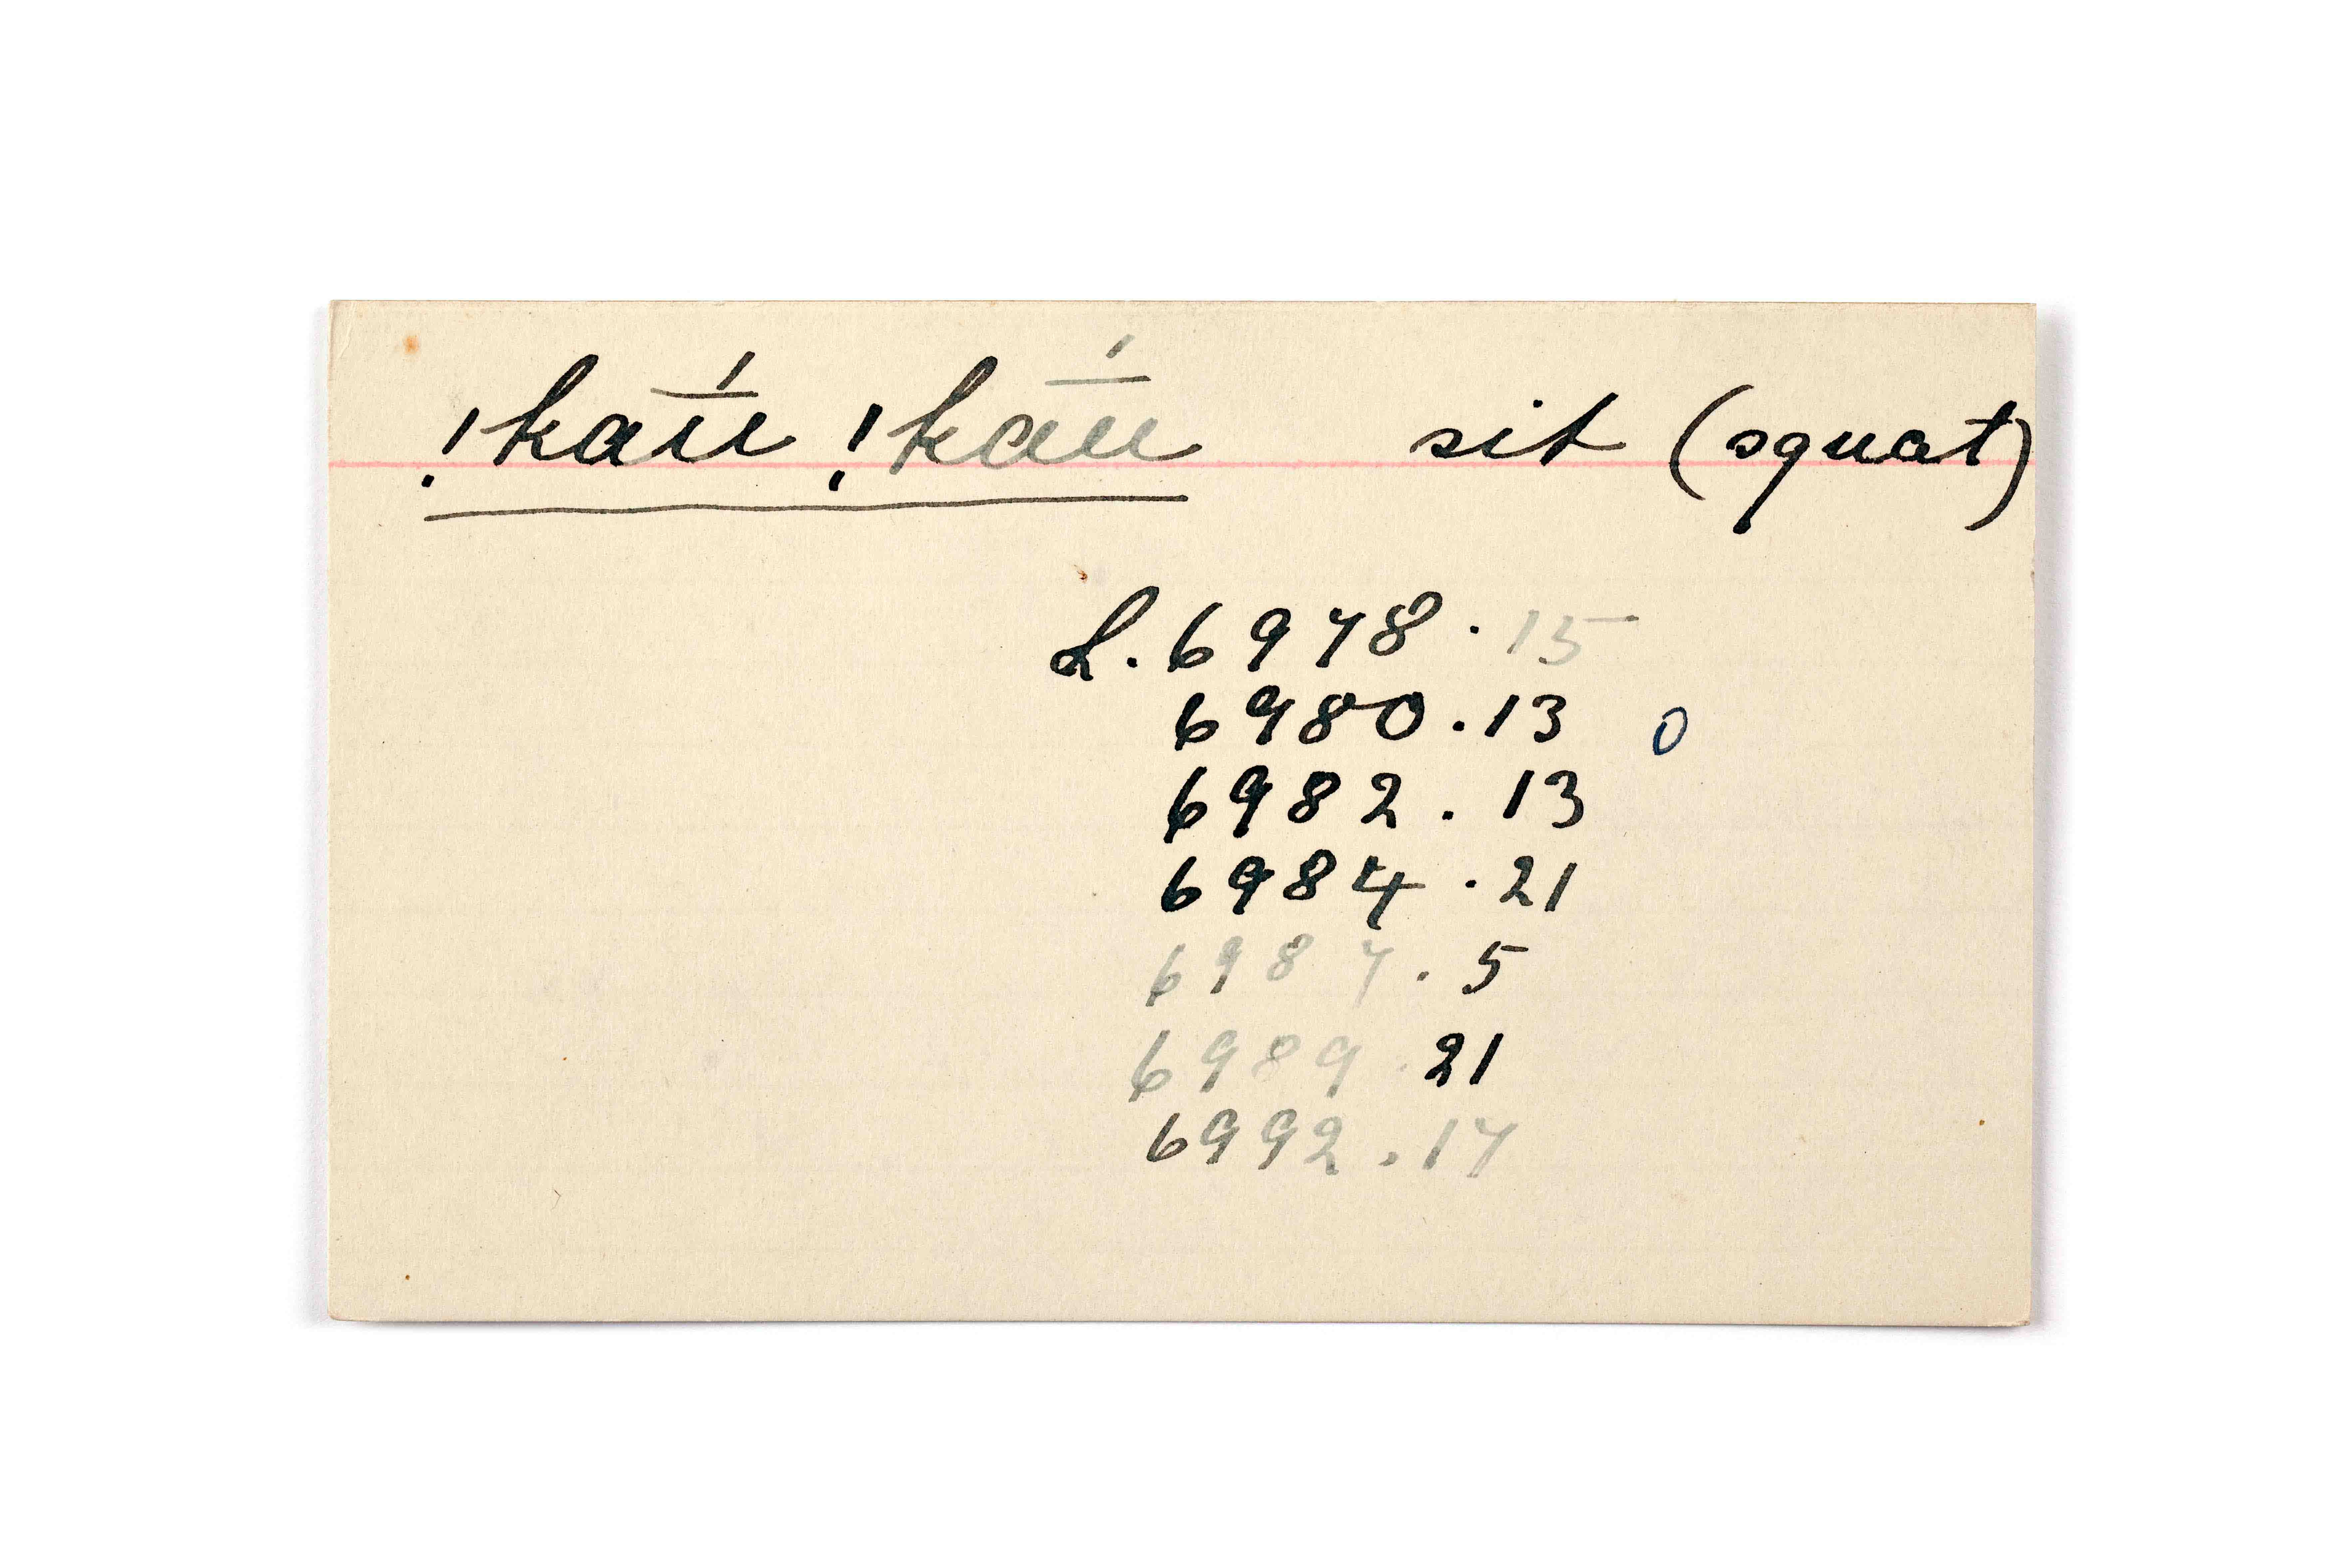 !kaū́ !kaū́ sit (squat)
L. 6978 . 15
6980 . 13 0
6982 . 13
6984 . 21
6987 . 5
6989 . 21
6992 . 17